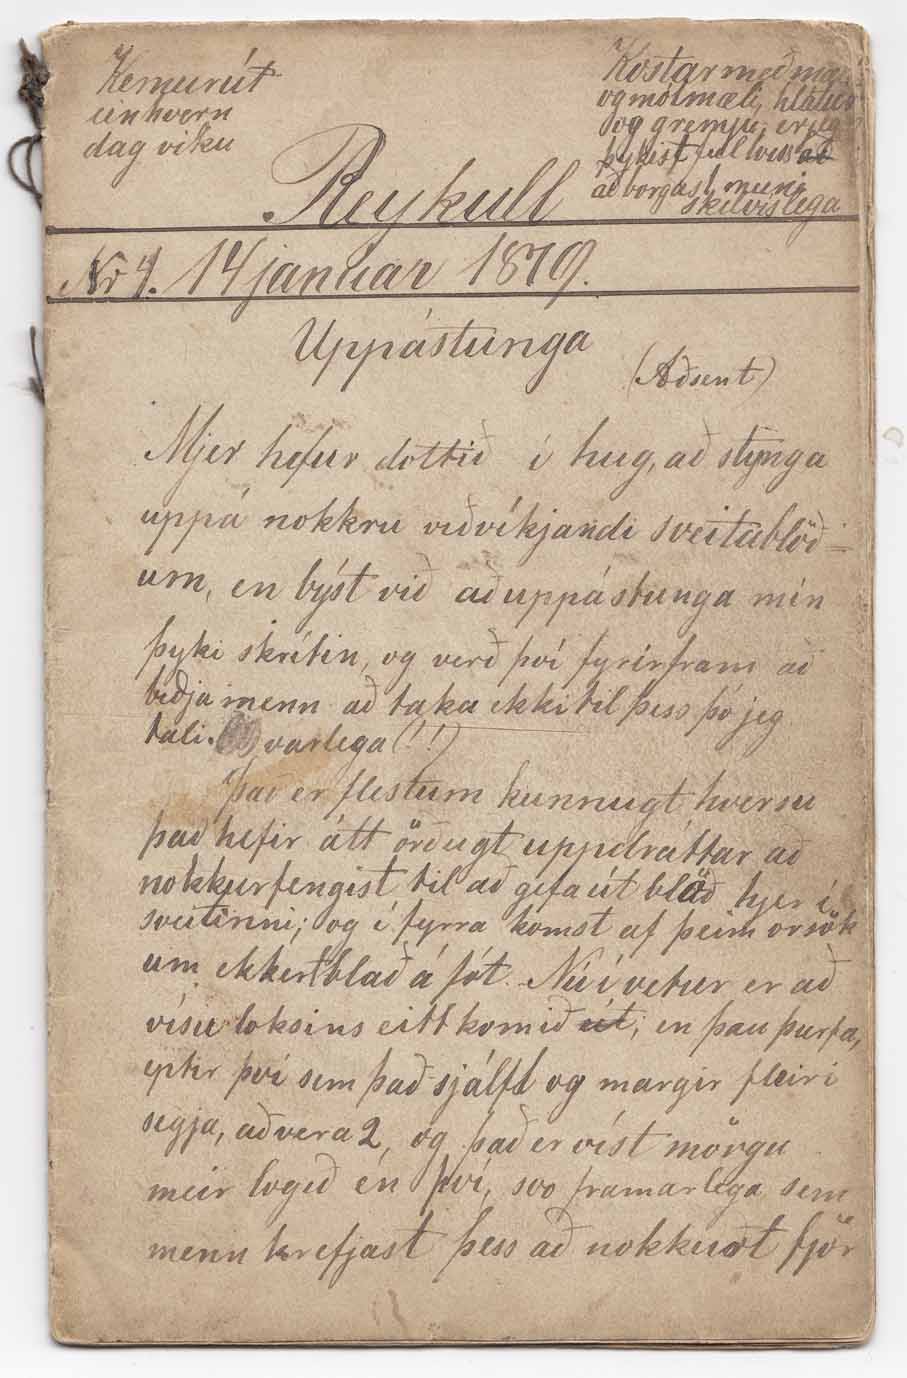 Kemur út
einhvern
dag viku
Kostar með mæ
og mótmæli, hlátur
og gremju, er jeg
þykist full viss að
að borgast muni
skilvíslega
Reykull
Nr 4. 14 januar 1879.
Uppástunga
(Aðsent)
Mjer hefur dottið í hug, að stynga
uppá nokkru viðvíkjandi sveitablöð-
um, en býst við að uppástunga mín
þyki skrítin, og verð því fyrirfram að
biðja menn að taka ekki til þess þó jeg
tali varlega (!!)
Það er flestum kunnugt hversu
það hefir átt örðugt uppdráttar að
nokkur fengist til að gefa út blöð hjer í
sveitinni; og í fyrra komst af þeim orsök
um ekkert blað á fót. Nú í vetur er að
vísu loksins eitt komið út; en þau þurfa,
eptir því sem það sjálft og margir fleiri
segja, að vera 2, og það er víst mörgu
meir logið en því, svo framarlega sem
menn krefjast þess að nokkurt fjör